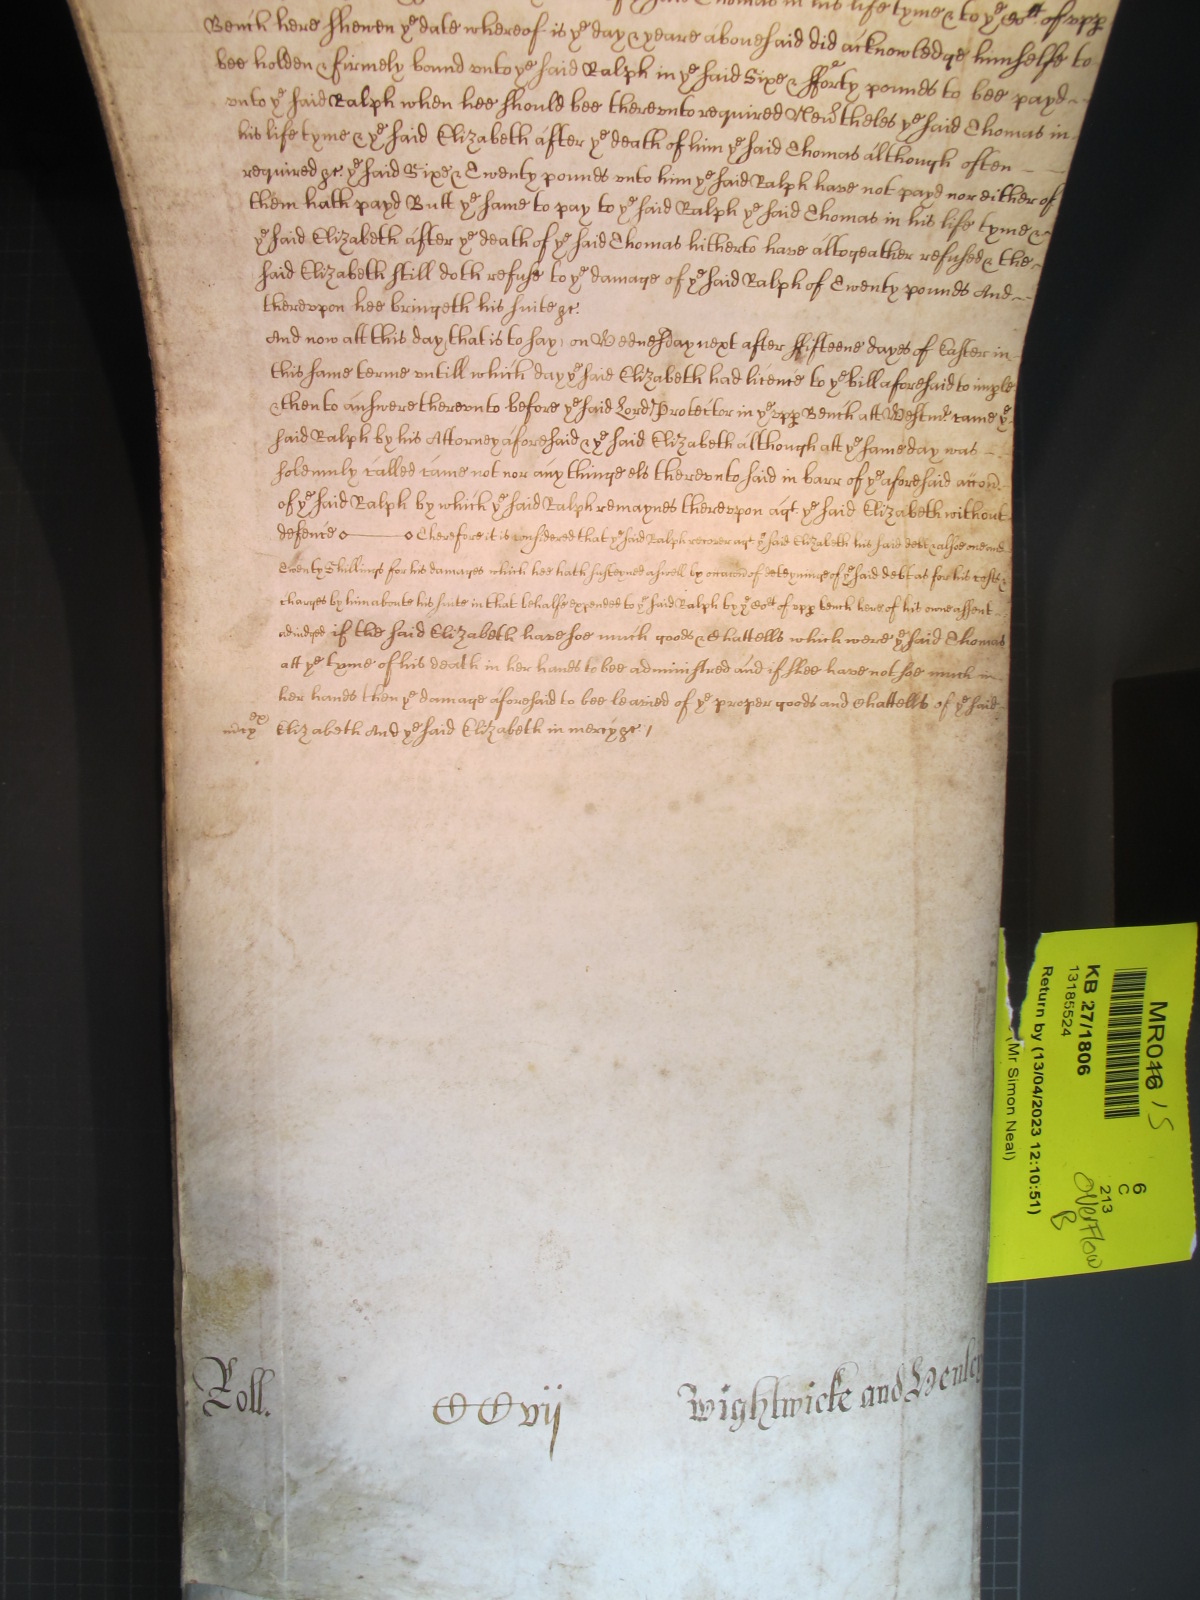 Thomas in his life tyme & to ye Cort of upp
Bench here shewen ye date whereof is ye day & yeare abovesaid did acknowledge himselfe to
bee holden & firmely bound unto ye said Ralph in ye said Sixe & fforty pounds to bee payd
unto ye said Ralph when hee should bee thereunto required Nevrtheles ye said Thomas in
his life tyme & ye said Elizabeth after ye death of him ye said Thomas although often
required &c. ye said Sixe & Twenty pounds unto him ye said Ralph have not payd nor either of
them hath payd Butt ye same to pay to ye said Ralph ye said Thomas in his life tyme &
ye said Elizabeth after ye death of ye said Thomas hitherto have altogeather refused & the
said Elizabeth still doth refuse to ye damage of ye said Ralph of Twenty pounds And
thereupon hee bringeth his suite &c.
And now att this day, that is to say, on Wednesday next after ffifteene dayes of Easter in
this same terme untill which day ye said Elizabeth had licence to ye bill aforesaid to imple
& then to answere thereunto before ye said Lord Protector in ye upp Bench att Westmr. came ye
said Ralph by his Attorney aforesaid & ye said Elizabeth although att ye same day was
solemnly called came not nor any thinge els thereunto said in barr of ye aforesaid accon
of ye said Ralph by which ye said Ralph remaynes thereupon agt ye said Elizabeth without
defence Therefore it is considered that ye said Ralph recover agt ye said Elizabeth his said debt & alsoe one and
Twenty Shillings for his damages which hee hath susteyned aswell by occacon of deteyninge of ye said debt as for his costs &
charges by him aboute his suite in that behalfe expended to ye said Ralph by ye Cort of upp bench here of his owne assent
adiudged if the said Elizabeth have soe much goods & Chattells which were ye said Thomas
att ye tyme of his death in her hands to bee administred and if shee have not soe much in
her hands then ye damage aforesaid to bee leavied of ye proper goods and Chattells of ye said
Elizabeth And ye said Elizabeth in mercy &c /
Roll.
CCvij
Wightwicke and Henley
MR046 15
KB 27/1806
13185524
Return by (13/04/2023 12:10:51)
(Mr Simon Neal)
6
C
213
OVERFLOW
B